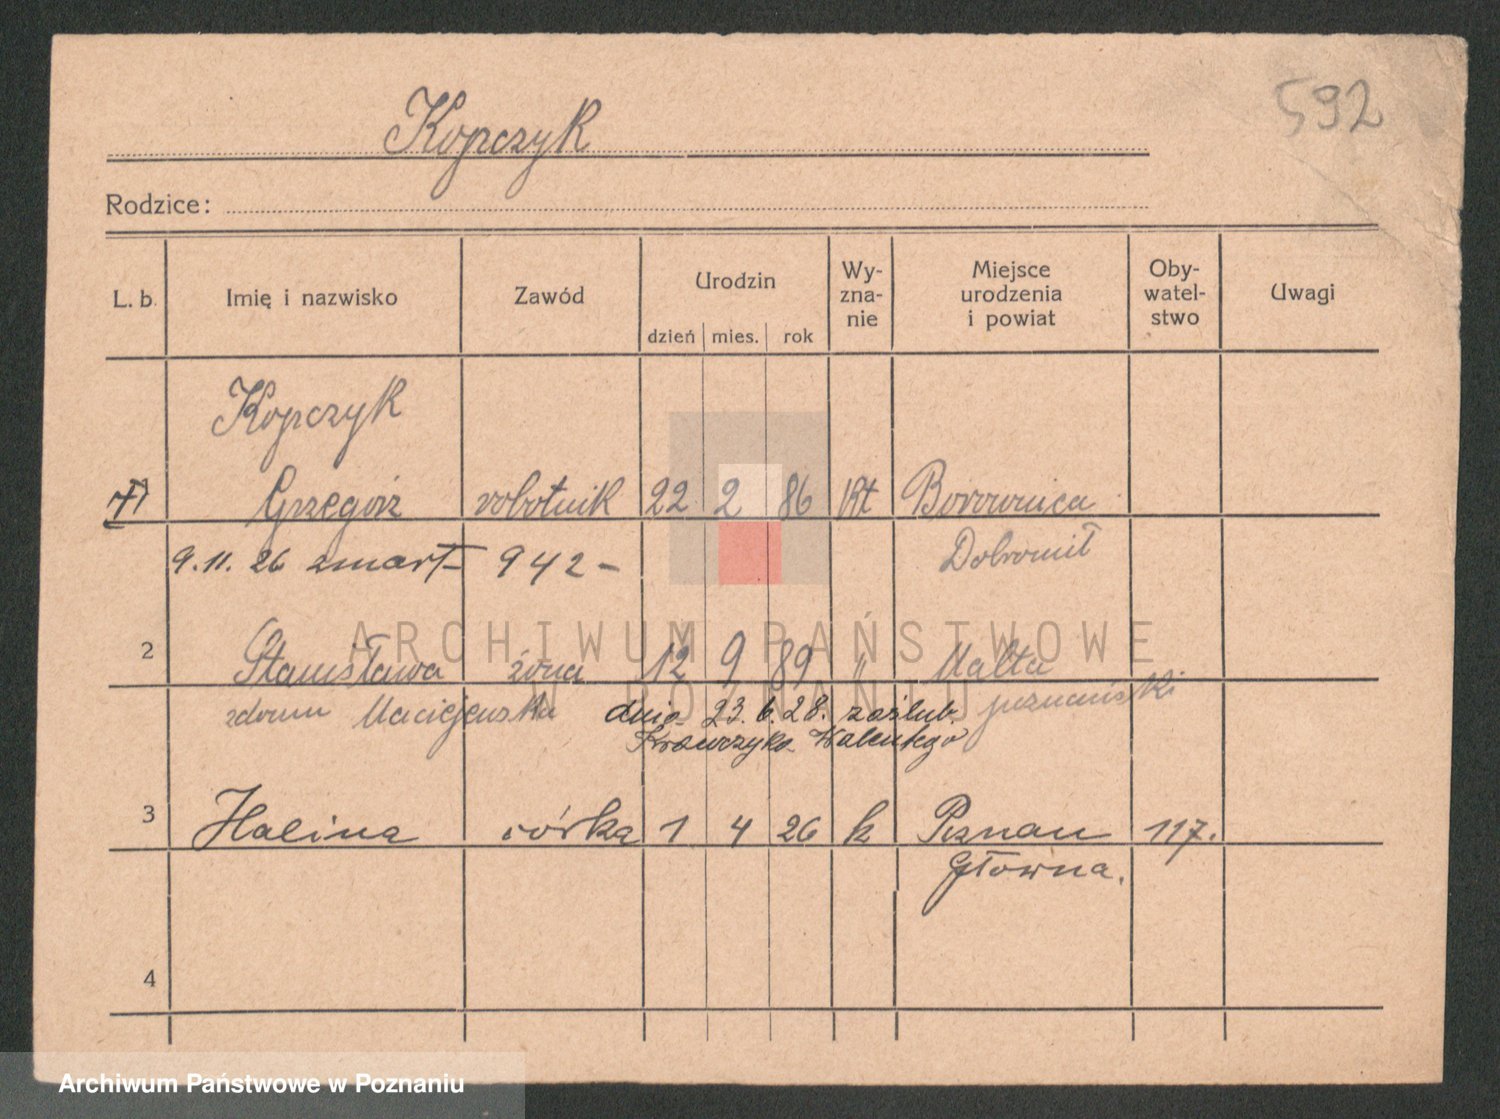 592
Kopczyk
Rodzice:
L. b. Imię i nazwisko Zawód Urodzin dzień mies. rok Wy-zna-nie Miejsce urodzenia i powiat Oby-watel-stwo Uwagi
Kopczyk
1 Grzegórz robotnik 22 2 86 kt Borownica
9.11.26 zmarł 942 – Dobromił
2 Stanisława żona 12 9 89 " Malta
zdomu Maciejewska dnia 23.6.28. zaślub. poznański
Krawczyka Walentego
3 Halina córka 1 4 26 k Poznan 117.
Główna.
4
ARCHIWUM PAŃSTWOWE
W POZNANIU
Archiwum Państwowe w Poznaniu